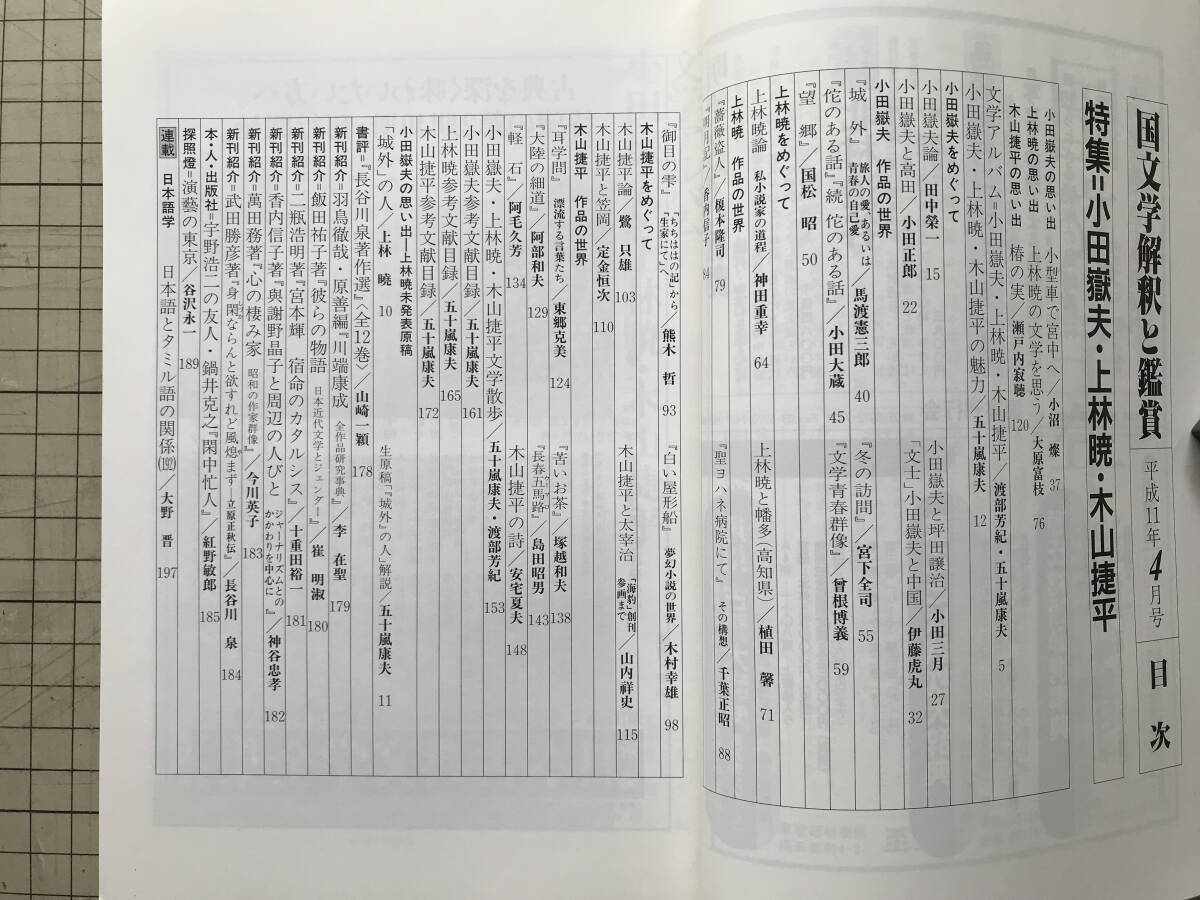 国文学解釈と鑑賞 平成11年4月号 目次
特集=小田嶽夫・上林暁・木山捷平
小田嶽夫の思い出 小型車で宮中へ/小沼 燦 37
上林暁の思い出 上林暁の文学を思う/大原富枝 76
木山捷平の思い出 椿の実/瀬戸内寂聴 120
文学アルバム=小田嶽夫・上林暁・木山捷平/渡部芳紀・五十嵐康夫 5
小田嶽夫・上林暁・木山捷平の魅力/五十嵐康夫 12
小田嶽夫をめぐって
小田嶽夫論/田中榮一 15
小田嶽夫と坪田譲治/小田三月 27
小田嶽夫と高田/小田正郎 22
「文士」小田嶽夫と中国/伊藤虎丸 32
小田嶽夫 作品の世界
『城 外』 旅人の愛、あるいは青春の自己愛/馬渡憲三郎 40
『冬の訪問』/宮下全司 55
『佗のある話』『続 佗のある話』/小田大蔵 45
『文学青春群像』/曾根博義 59
『望 郷』/国松 昭 50
上林暁をめぐって
上林暁論 私小説家の道程/神田重幸 64
上林暁と幡多(高知県)/植田 馨 71
上林暁 作品の世界
『薔薇盗人』/榎本隆司 79
『聖ヨハネ病院にて』 その構想/千葉正昭 88
『明月記』/香内信子 84
『御目の雫』 『ちちははの記』から『生家にて』へ/熊木 哲 93
『白い屋形船』 夢幻小説の世界/木村幸雄 98
木山捷平をめぐって
木山捷平論/鷺 只雄 103
木山捷平と太宰治 「海豹」創刊参画まで/山内祥史 115
木山捷平と笠岡/定金恒次 110
木山捷平 作品の世界
『耳学問』 漂流する言葉たち/東郷克美 124
『苦いお茶』/塚越和夫 138
『大陸の細道』/阿部和夫 129
『長春五馬路』/島田昭男 143
『軽 石』/阿毛久芳 134
木山捷平の詩/安宅夏夫 148
小田嶽夫・上林暁・木山捷平文学散歩/五十嵐康夫・渡部芳紀 153
小田嶽夫参考文献目録/五十嵐康夫 161
上林暁参考文献目録/五十嵐康夫 165
木山捷平参考文献目録/五十嵐康夫 172
小田嶽夫の思い出―上林暁未発表原稿
「城外」の人/上林 暁 10
生原稿「『城外』の人」解説/五十嵐康夫 11
書評=『長谷川泉著作選』〈全12巻〉/山崎一穎 178
新刊紹介=羽鳥徹哉・原善編『川端康成 全作品研究事典』/李 在聖 179
新刊紹介=飯田祐子著『彼らの物語 日本近代文学とジェンダー』/崔 明淑 180
新刊紹介=二瓶浩明著『宮本輝 宿命のカタルシス』/十重田裕一 181
新刊紹介=香内信子著『與謝野晶子と周辺の人びと ジャーナリズムとのかかわりを中心に』/神谷忠孝 182
新刊紹介=萬田務著『心の棲み家 昭和の作家群像』/今川英子 183
新刊紹介=武田勝彦著『身閑ならんと欲すれど風熄まず 立原正秋伝』/長谷川 泉 184
本・人・出版社=宇野浩二の友人・鍋井克之『閑中忙人』/紅野敏郎 185
探照燈=演藝の東京/谷沢永一 189
連載 日本語学 日本語とタミル語の関係(192)/大野 晋 197